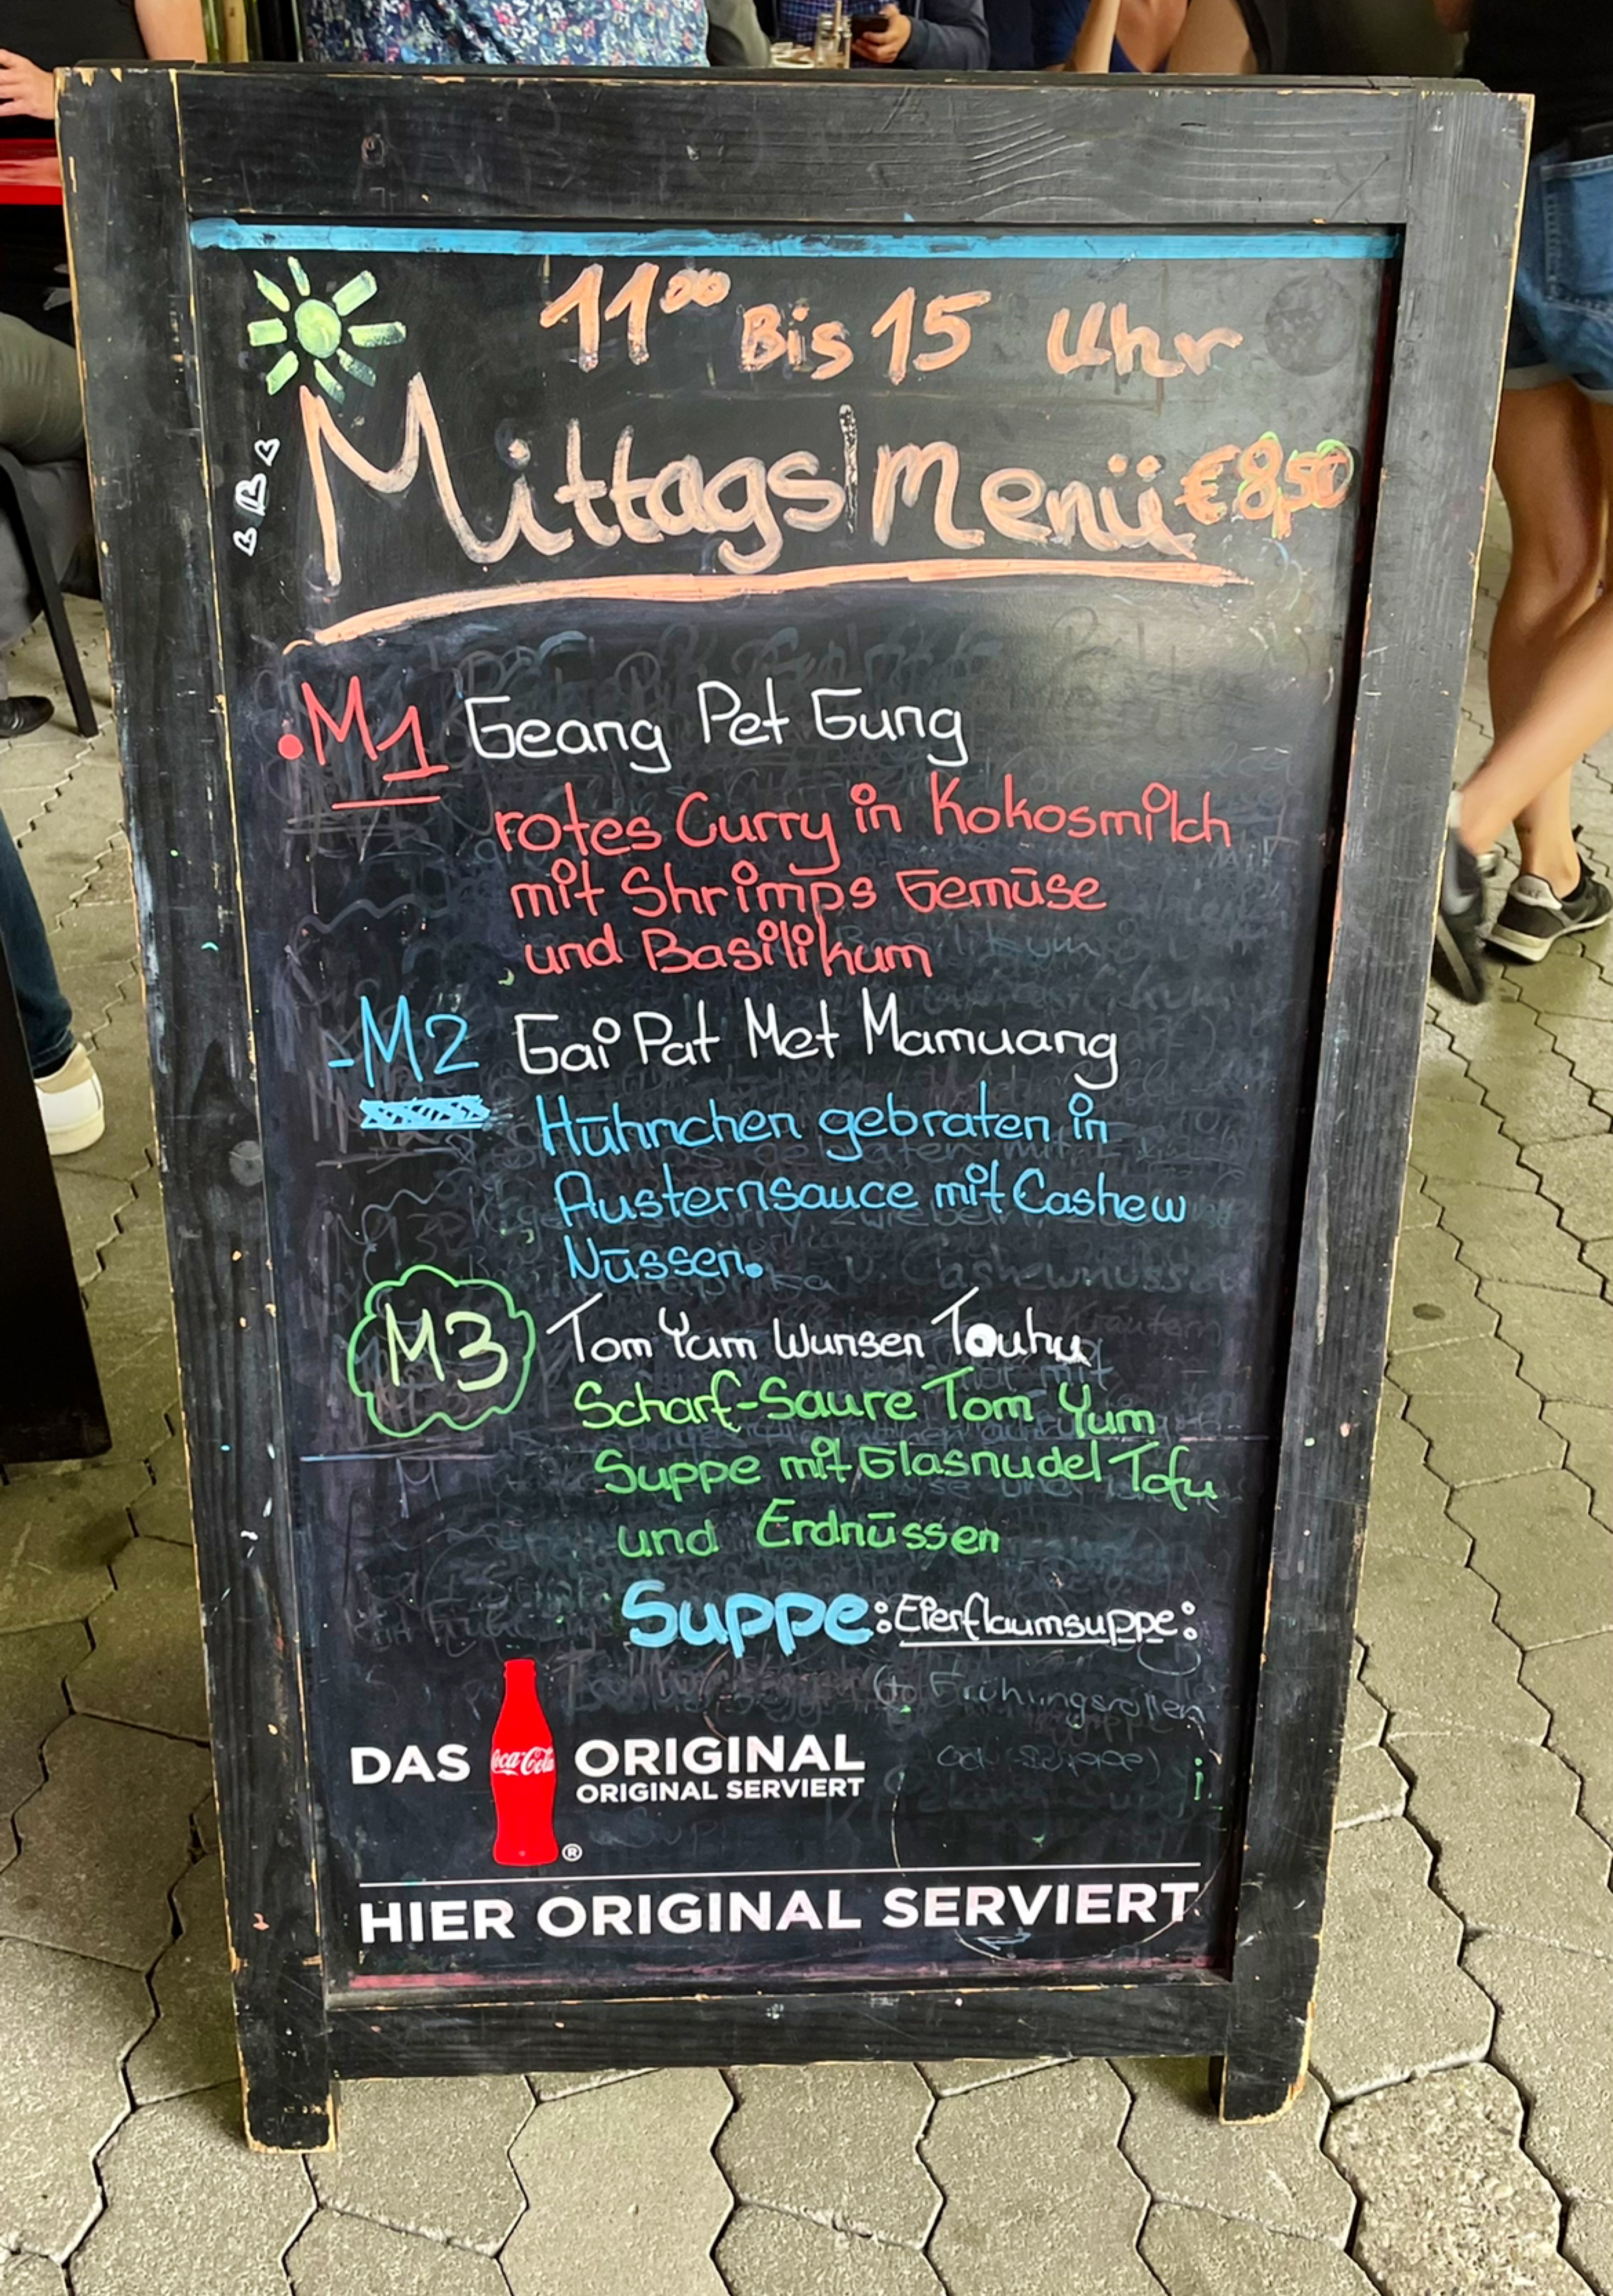 11⁰⁰ Bis 15 Uhr
Mittags|Menü €8,50
.M1 Geang Pet Gung
rotes Curry in Kokosmilch
mit Shrimps Gemüse
und Basilikum
-M2 Gai Pat Met Mamuang
Hühnchen gebraten in
Austernsauce mit Cashew
Nüssen.
M3 Tom Yum Wunsen Touhu
Scharf-Saure Tom Yum
Suppe mit Glasnudel Tofu
und Erdnüssen
Suppe: Eierflaumsuppe:
Frühlingsrollen
DAS Coca-Cola ORIGINAL
ORIGINAL SERVIERT
®
HIER ORIGINAL SERVIERT